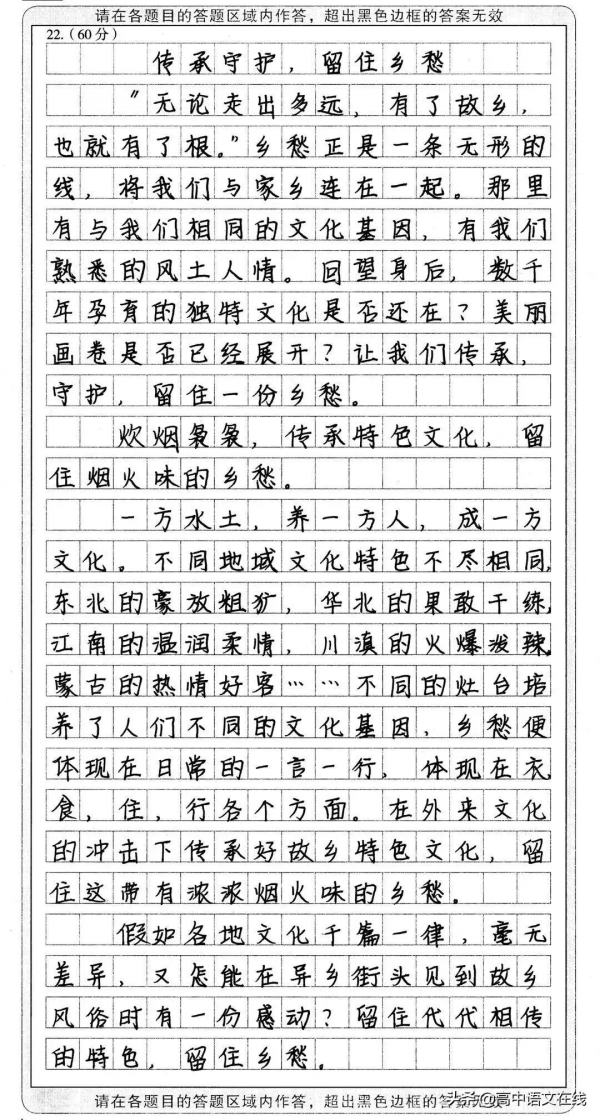 请在各题目的答题区域内作答，超出黑色边框的答案无效
22.(60分)
传承守护，留住乡愁
“无论走出多远，有了故乡，
也就有了根。”乡愁正是一条无形的
线，将我们与家乡连在一起。那里
有与我们相同的文化基因，有我们
熟悉的风土人情。回望身后，数千
年孕育的独特文化是否还在？美丽
画卷是否已经展开？让我们传承，
守护，留住一份乡愁。
炊烟袅袅，传承特色文化，留
住烟火味的乡愁。
一方水土，养一方人，成一方
文化。不同地域文化特色不尽相同，
东北的豪放粗犷，华北的果敢干练，
江南的温润柔情，川滇的火爆泼辣，
蒙古的热情好客……不同的灶台培
养了人们不同的文化基因，乡愁便
体现在日常的一言一行，体现在衣，
食，住，行各个方面。在外来文化
的冲击下传承好故乡特色文化，留
住这带有浓浓烟火味的乡愁。
假如各地文化千篇一律，毫无
差异，又怎能在异乡街头见到故乡
风俗时有一份感动？留住代代相传
的特色，留住乡愁。
请在各题目的答题区域内作答，超出黑色边框的答案无效
头条@高中语文在线